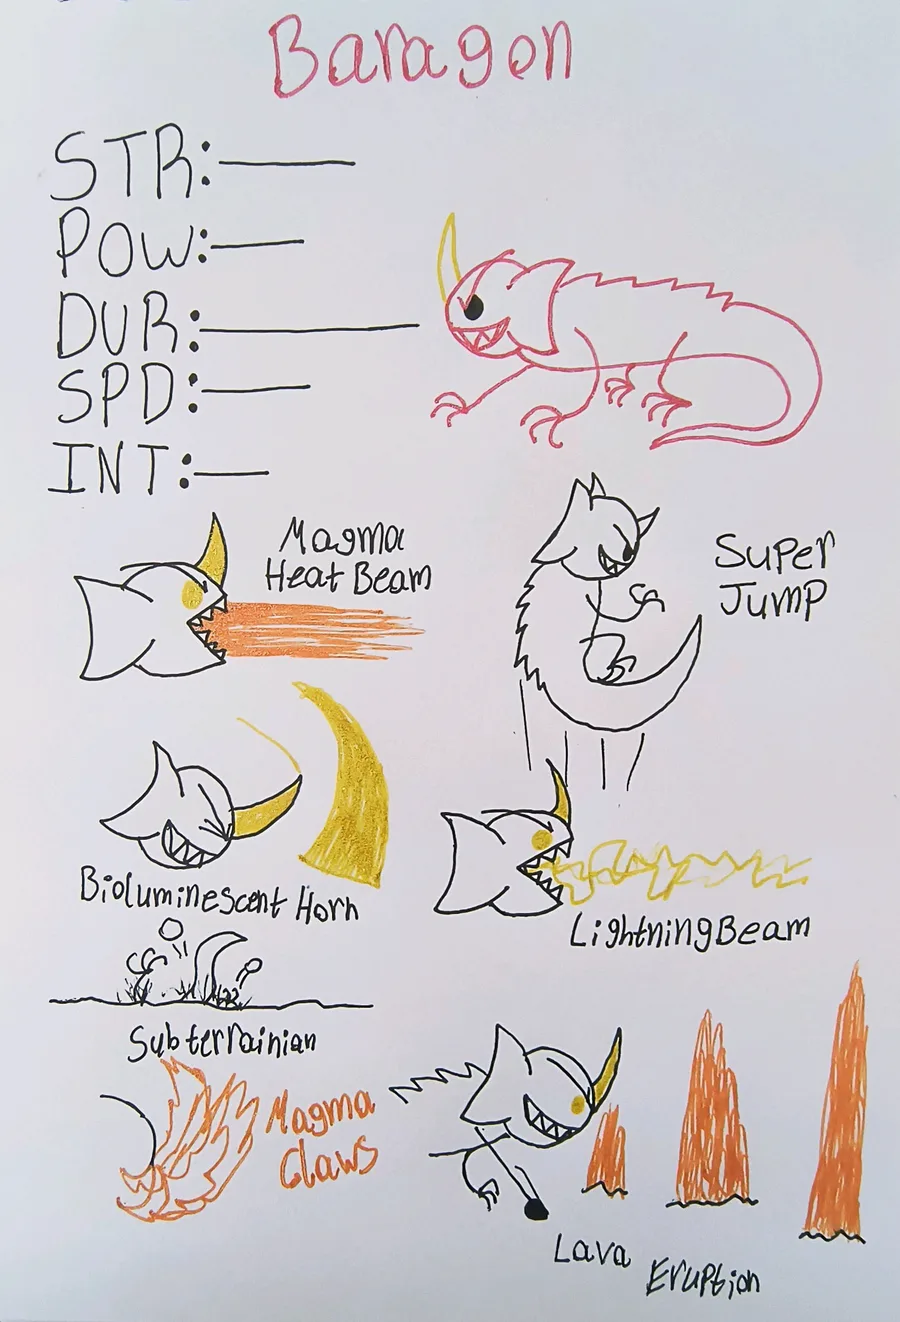 Baragon
STR:
POW:
DUR:
SPD:
INT:
Magma
Heat Beam
Super
Jump
Bioluminescent Horn
Lightning Beam
Subterrainian
Magma
Claws
Lava
Eruption